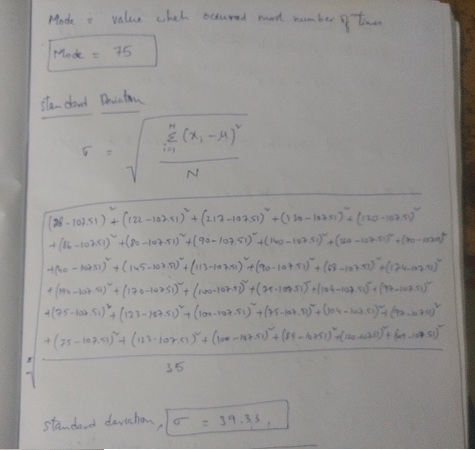 Mode = value which occurred most number of times
Mode = 75
standard Deviation
σ = √ Σ i=1 N (xi - μ)² / N
(122-107.51)² + (217-107.51)² + (130-107.51)² + (120-107.51)²
+(86-107.51)² +(80-107.51)² +(90-107.51)² +(140-107.51)² +(120-107.51)² +(70-107.51)²
+(90-107.51)² +(145-107.51)² +(113-107.51)² +(90-107.51)² +(68-107.51)² +(174-107.51)²
+(194-107.51)² +(170-107.51)² +(100-107.51)² +(75-107.51)² +(104-107.51)² +(97-107.51)²
+(75-107.51)² +(123-107.51)² +(100-107.51)² +(75-107.51)² +(104-107.51)² +(97-107.51)²
+(75-107.51)² +(123-107.51)² +(100-107.51)² +(89-107.51)²
35
standard deviation, σ = 39.33.